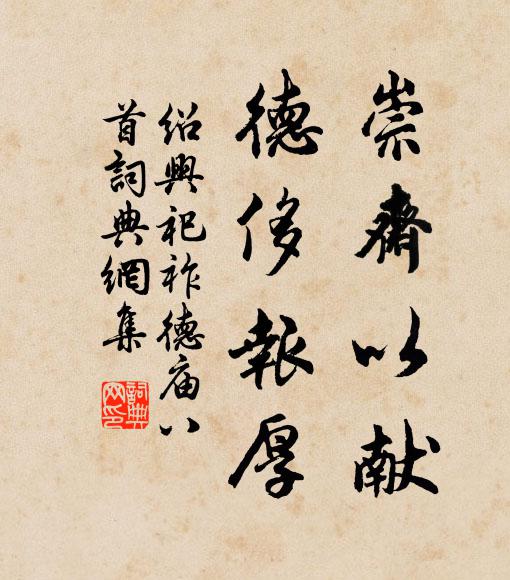 崇齋以献
德侈報厚
紹興祀祚德庙八
首詞典網集
詞典
网印